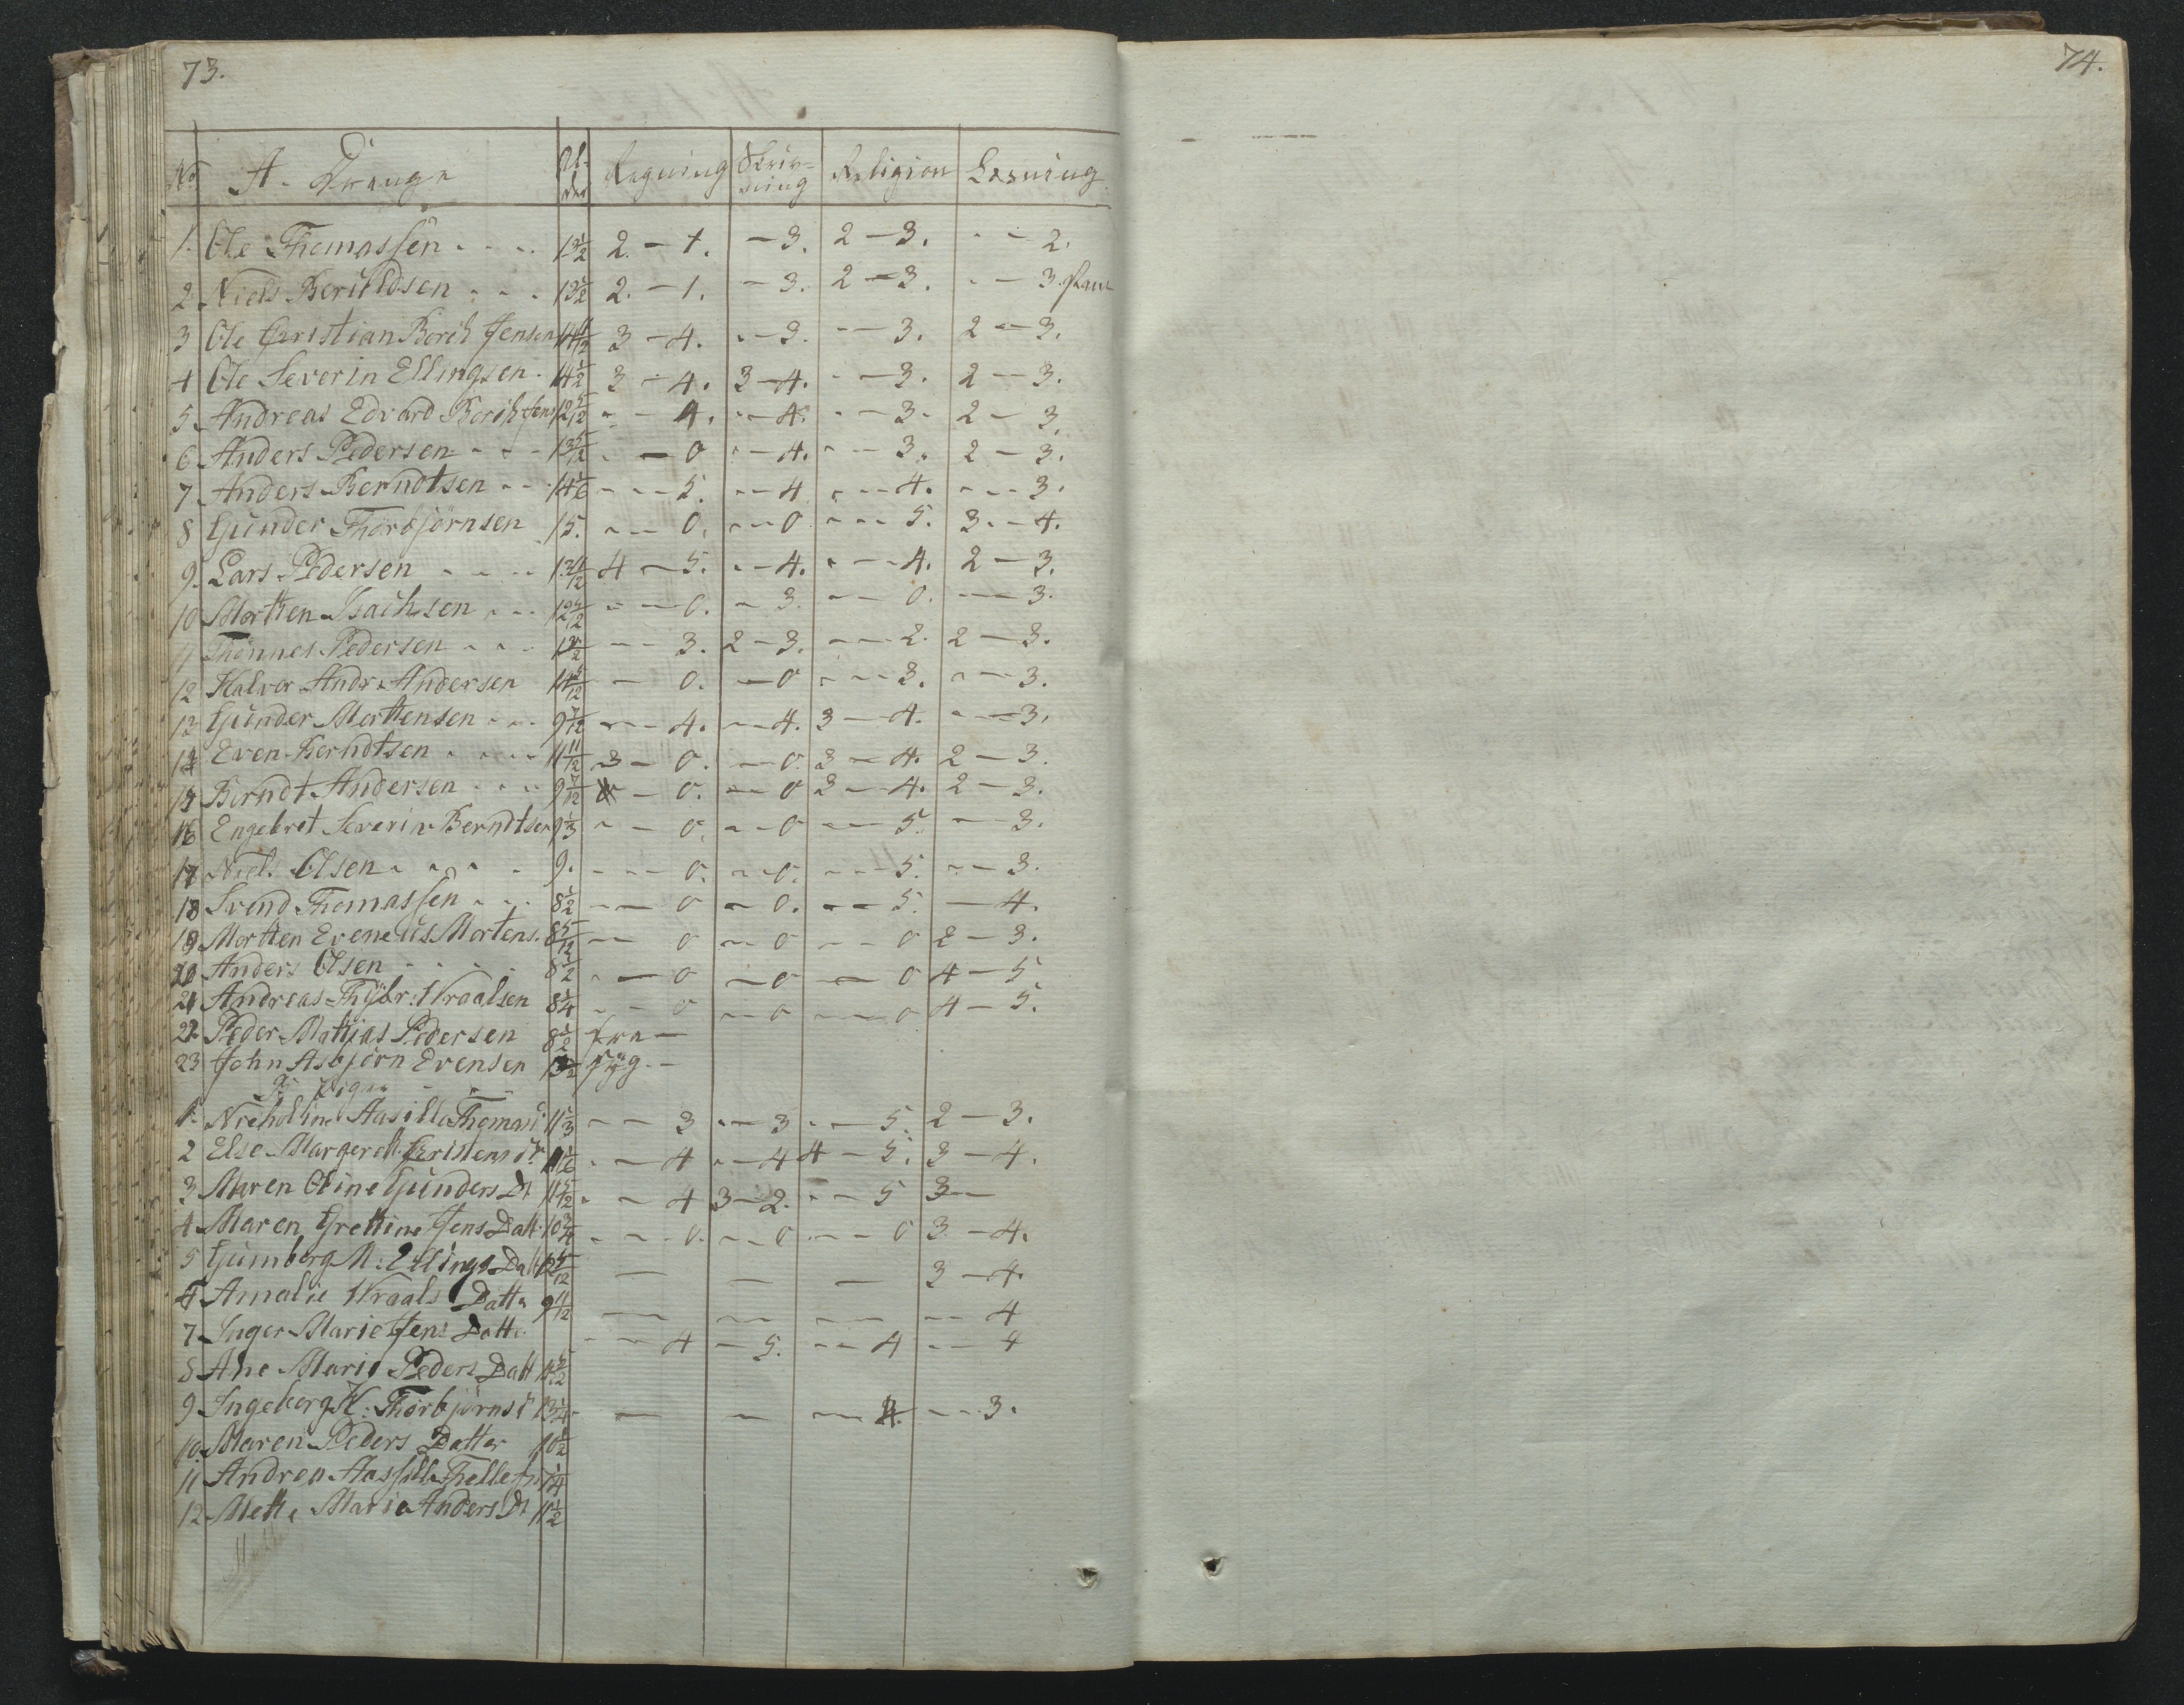 73.
No A. Drenge Al-der Regning Skriv-ning Religion Læsning
1. Ole Thomassen 13 1/2 2. - 1. - 3. 2 - 3. - - 2.
2. Niels Beruldsen 13 1/2 2. - 1. - 3. 2 - 3. - - 3.
3 Ole Christian Borch Jensen 14 11/12 3 - 4. - - 3. - - 3. 2 - 3.
4 Ole Severin Ellingsen 14 1/2 3 - 4. 3 - 4. - - 3. 2 - 3.
5 Andreas Edvard Borch Jens 12 5/12 - - 4. - - 4. - - 3. 2 - 3.
6 Anders Pedersen 13 5/12 - - 0 - - 4. - - 3. 2 - 3.
7. Anders Berndtsen 14 1/6 - - - 5. - - 4 - - - 4. - - - 3.
8 Gunder Thorbjørnsen 15. - - - 0. - - 0 - - - 5. 3. - 4.
9. Lars Pedersen 13 11/12 4 - 5. - - 4. - - - 4. 2 - 3.
10 Morthen Isachsen - - - 0. - 3. - - 0. - - 3.
11 Thönnes Pedersen - - 3. 2 - 3. - - - 2. 2 - 3.
12 Halvor Andr. Andersen - 0. - 0 - - - 3. - - - 3.
13 Gunder Morthensen 9 7/12 - - - 4. - - 4. 3 - 4. - - - 3.
14 Even Berndtsen 11 11/12 3 - 0. - - 0. 3 - 4. 2 - 3.
15 Berndt Andersen 9 7/12 - 0. - - 0 3 - 4. 2 - 3.
16 Engebret Severin Berndtsen 9 1/3 - - 0. - - 0 - - - 5. - - 3.
17 Niels Olsen 9. - - - 0. - - 0. - - - 5. - - 3.
18 Svend Thomassen 8 1/2 - - 0 - 0. - - 5. - 4.
19 Morthen Eveneus Mortens. 8 5/12 - - 0 - - 0 - - 0 2 - 3.
20 Anders Olsen 8 1/2 - - 0 - 0 - 0 4 - 5
21 Andreas Thybr: Wraalsen 8 1/4 - - 0 - - 0 - - - 0 4 - 5.
22. Peder Mathias Pedersen 8 1/2
23 John Asbjørn Evensen syg. -
Piger
1. Aasille Thomas 11 1/3 - - 3 - - 3 - - 5. 2 - 3.
2 Else Margereth Christens - - 4 - - 4 4 - 5. 3 - 4.
3. Maren Oline Gunders Dt 11 5/12 - - 4 3 - 2. - - 5 3 -
4 Maren Grethine Jens Datt. 10 3/4 - - - 0. - - 0 - - 0 3 - 4.
5 Gumborg M: Ellings Datt - - - 3 - 4.
6 Amalie Wraals Datter 9 11/12 - - - - - 4
7. Inger Marie Jens Datte - - 4 - 5. - - 4 - - 4
8 Ane Marie Peders Datt
9 Ingeborg K: Thorbjørnsd 13 1/4 - - - - 4. - - 3.
10. Maren Peders Datter 10 1/2
11 Andrea Aassille Thellefs
12 Mette Marie Anders Dt 11 1/2
74.